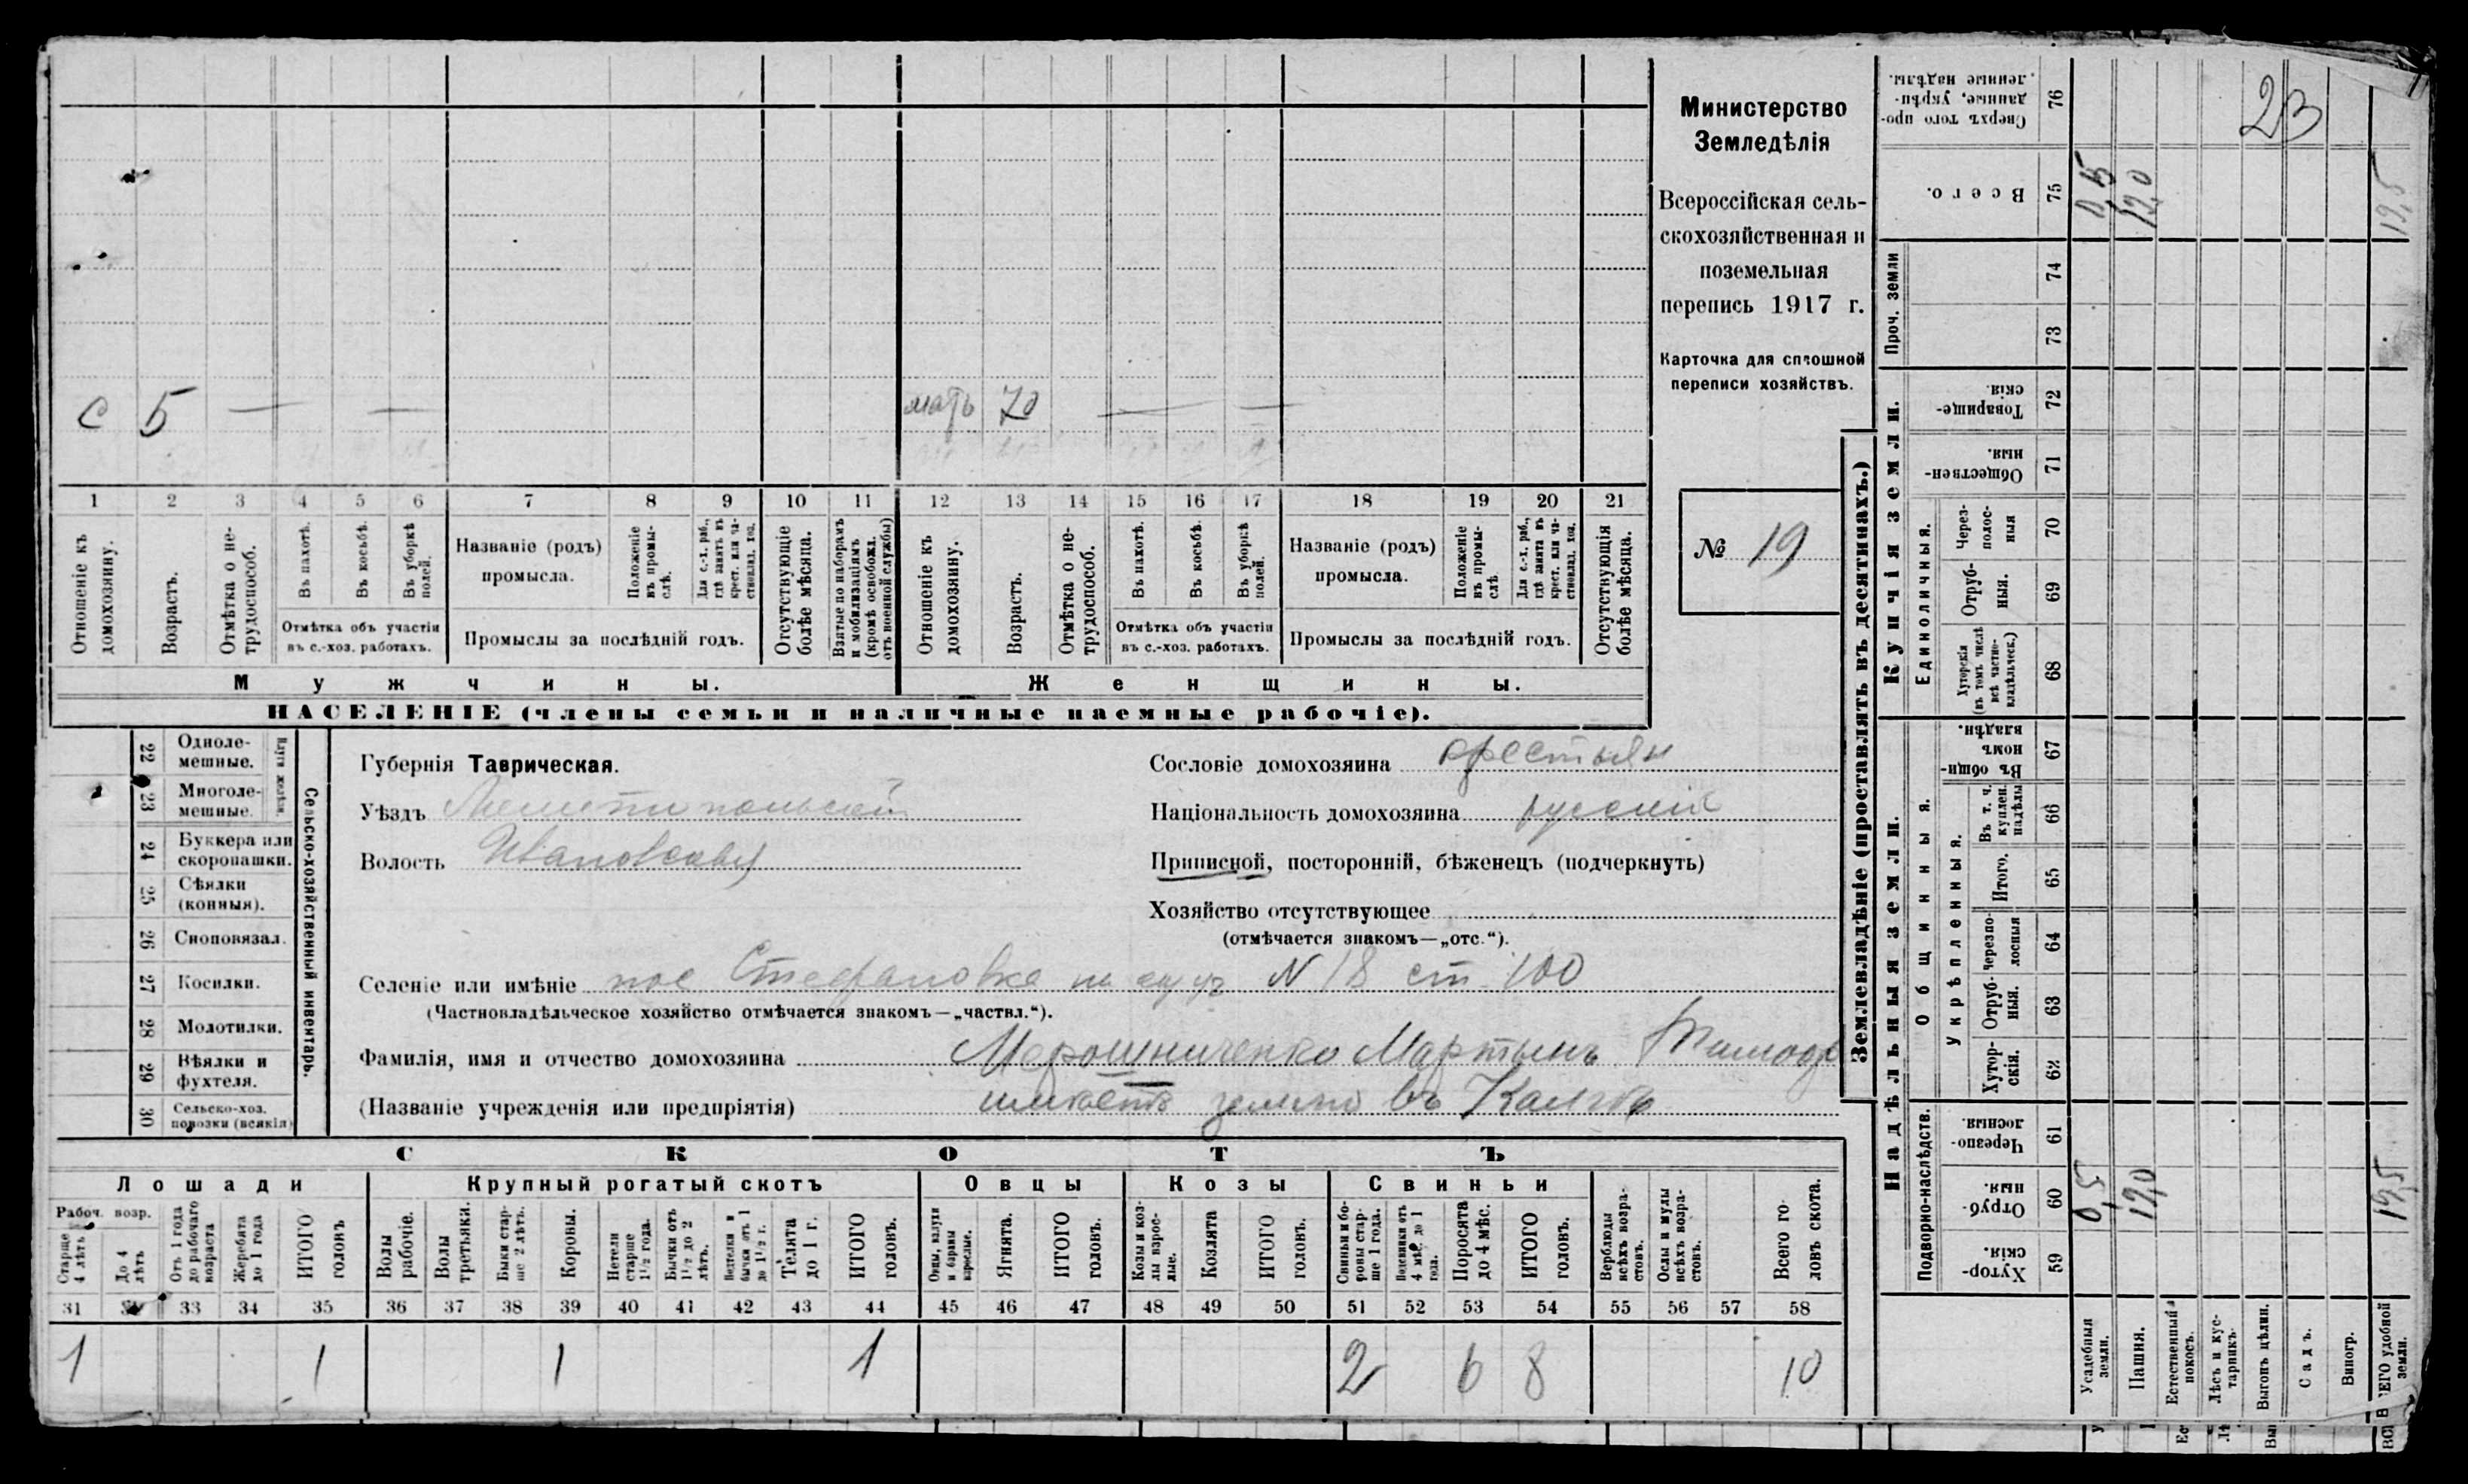 с 5 — —
мать 70 — —
1 2 3 4 5 6 7 8 9 10 11 12 13 14 15 16 17 18 19 20 21
Отношеніе къ домохозяину.
Возрастъ.
Отмѣтка о не-
трудоспособ.
Въ пахотѣ.
Въ косьбѣ.
Въ уборкѣ
полей.
Отмѣтка объ участіи
въ с.-хоз. работахъ.
Названіе (родъ)
промысла.
Положеніе
въ промы-
слѣ.
Для с.-х. раб.,
гдѣ занятъ въ
крест. или ча-
стновлад. хоз.
Промыслы за послѣдній годъ.
Отсутствующіе
болѣе мѣсяца.
Взятые по наборамъ
и мобилизаціямъ
(кромѣ освобожд.
отъ военной службы)
Отношеніе къ
домохозяину.
Возрастъ.
Отмѣтка о не-
трудоспособ.
Въ пахотѣ.
Въ косьбѣ.
Въ уборкѣ
полей.
Отмѣтка объ участіи
въ с.-хоз. работахъ.
Названіе (родъ)
промысла.
Положеніе
въ промы-
слѣ.
Для с.-х. раб.,
гдѣ занята въ
крест. или ча-
стновлад. хоз.
Промыслы за послѣдній годъ.
Отсутствующія
болѣе мѣсяца.
Мужчины.
Женщины.
НАСЕЛЕНІЕ (члены семьи и наличные наемные рабочіе).
Министерство
Земледѣлія
Всероссійская сель-
скохозяйственная и
поземельная
перепись 1917 г.
Карточка для сплошной
переписи хозяйствъ.
№ 19
22 Одноле-
мешные.
23 Многоле-
мешные.
24 Буккера или
скоропашки.
25 Сѣялки
(конныя).
26 Сноповязал.
27 Косилки.
28 Молотилки.
29 Вѣялки и
фухтеля.
30 Сельско-хоз.
повозки (всякія)
Сельско-хозяйственный инвентарь.
Губернія Таврическая.
Уѣздъ Мелитопольскій
Волость Ивановская
Сословіе домохозяина крестьян
Національность домохозяина русскій
Приписной, посторонній, бѣженецъ (подчеркнуть)
Хозяйство отсутствующее
(отмѣчается знакомъ—„отс.“).
Селеніе или имѣніе пос Стефановка N 18 ст. 100
(Частновладѣльческое хозяйство отмѣчается знакомъ—„частвл.“).
Фамилія, имя и отчество домохозяина Мирошниченко Мартынъ Тимоф
(Названіе учрежденія или предпріятія) имѣетъ землю въ
СКОТЪ
Лошади
Крупный рогатый скотъ
Овцы
Козы
Свиньи
Рабоч. возр.
Старше
4 лѣтъ
До 4
лѣтъ
Отъ 1 года
до рабочаго
возраста
Жеребята
до 1 года
ИТОГО
головъ
Волы
рабочіе.
Волы
третьяки.
Быки стар-
ше 2 лѣтъ.
Коровы.
Нетели
старше
1½ года.
Бычки отъ
1½ до 2
лѣтъ.
Нетелки и
бычки отъ 1
до 1½ г.
Телята
до 1 г.
ИТОГО
головъ.
Овцы, валухи
и бараны
взрослые.
Ягнята.
ИТОГО
головъ.
Козы и коз-
лы взрос-
лые.
Козлята
ИТОГО
головъ.
Свиньи и бо-
ровы стар-
ше 1 года.
Подсвинки отъ
4 мѣс. до 1
года.
Поросята
до 4 мѣс.
ИТОГО
головъ.
Верблюды
всѣхъ возра-
стовъ.
Ослы и мулы
всѣхъ возра-
стовъ.
Всего го-
ловъ скота.
31 33 34 35 36 37 38 39 40 41 42 43 44 45 46 47 48 49 50 51 52 53 54 55 56 57 58
1 1 1 1 2 6 8 10
Землевладѣніе (проставлять въ десятинахъ.)
Надѣльныя земли.
Купчія земли.
Проч. земли
Подворно-наслѣдств.
Общинныя.
Укрѣпленныя.
Единоличныя.
Сверхъ того про-
данные, укрѣп-
ленные надѣлы.
76
Всего.
75
74
73
Товарище-
скія.
72
Обществен-
ныя.
71
Через-
полос-
ныя
70
Отруб-
ныя.
69
Хуторскія
(въ томъ числѣ
всѣ частно-
владѣльческ.)
68
Въ общин-
номъ
владѣн.
67
Въ т. ч.
куплен.
надѣлы
66
Итого.
65
Черезпо-
лосныя
64
Отруб-
ныя.
63
Хутор-
скія.
62
Черезпо-
лосныя.
61
Отруб-
ныя.
60
Хутор-
скія.
59
23
0,5
19,0
19,5
0,5
19,0
19,5
Усадебныя
земли.
Пашня.
Естественный
покосъ.
Лѣсъ и кус-
тарникъ.
Выгонъ цѣлин.
Садъ.
Виногр.
ВСЕГО удобной
земли.